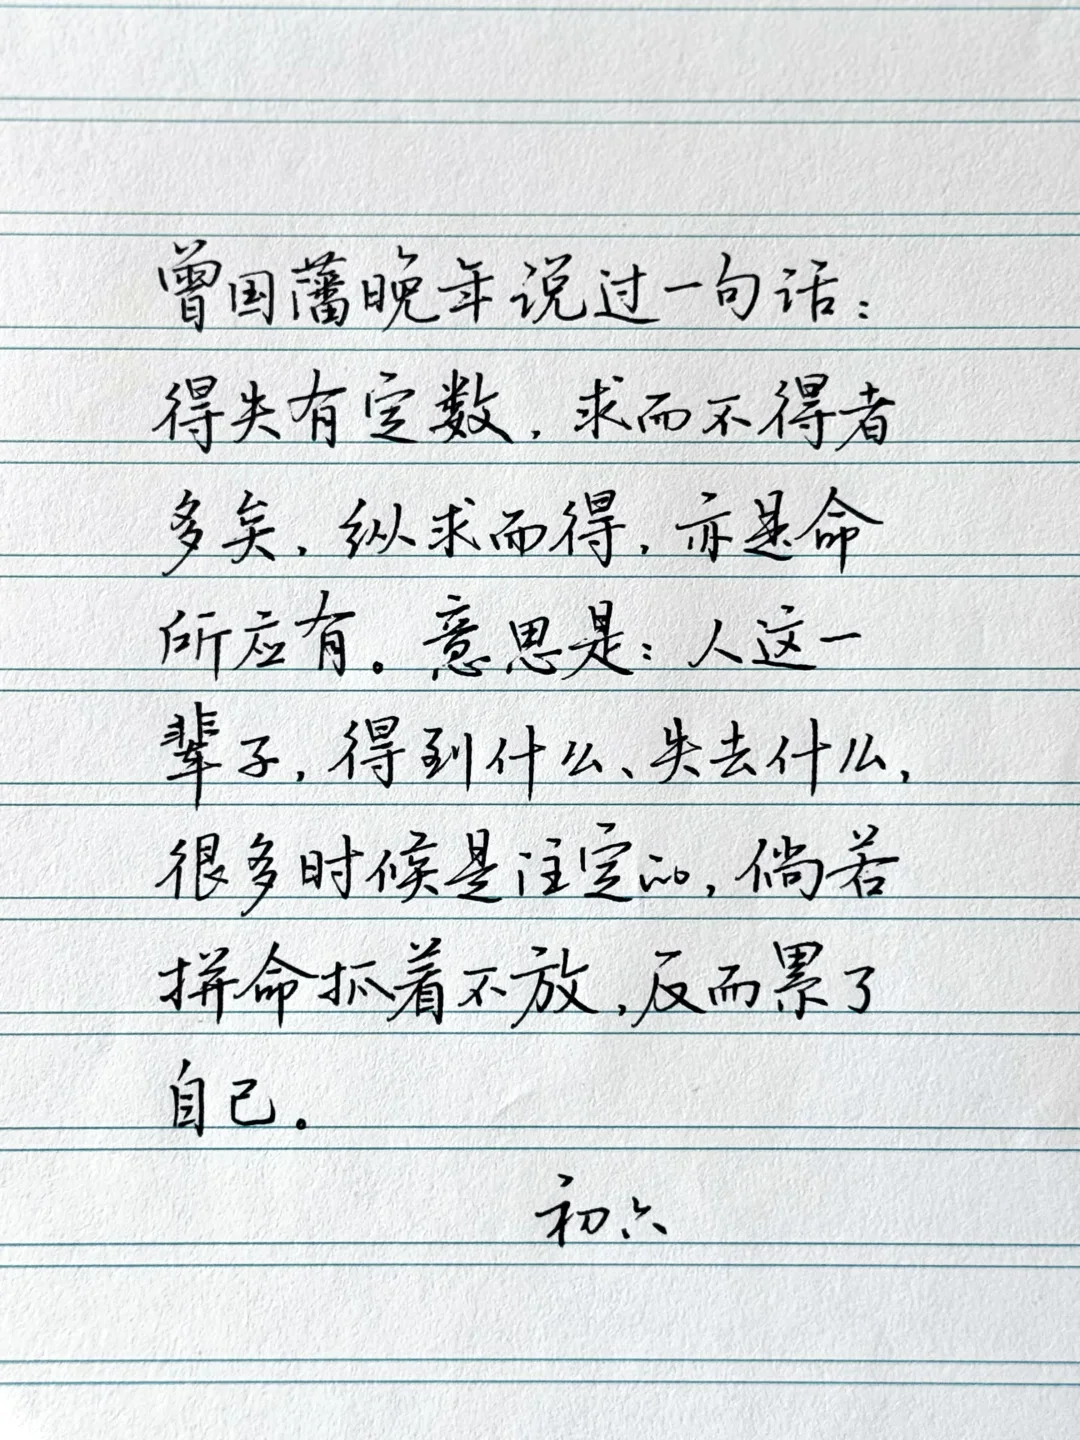 曾国藩晚年说过一句话：
得失有定数，求而不得者
多矣，纵求而得，亦是命
所应有。意思是：人这一
辈子，得到什么、失去什么，
很多时候是注定的，倘若
拼命抓着不放，反而累了
自己。
初六